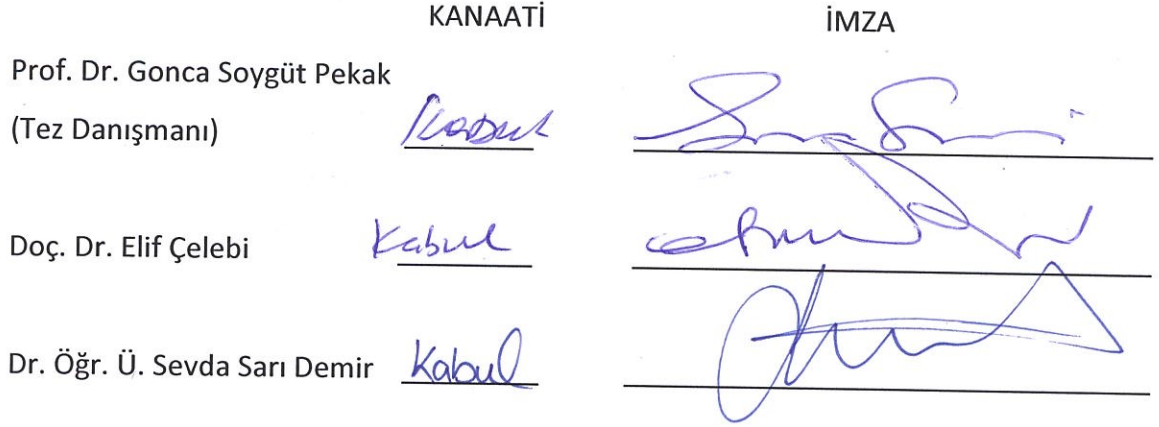 KANAATİ İMZA
Prof. Dr. Gonca Soygüt Pekak
(Tez Danışmanı) Kabul
Doç. Dr. Elif Çelebi Kabul
Dr. Öğr. Ü. Sevda Sarı Demir Kabul